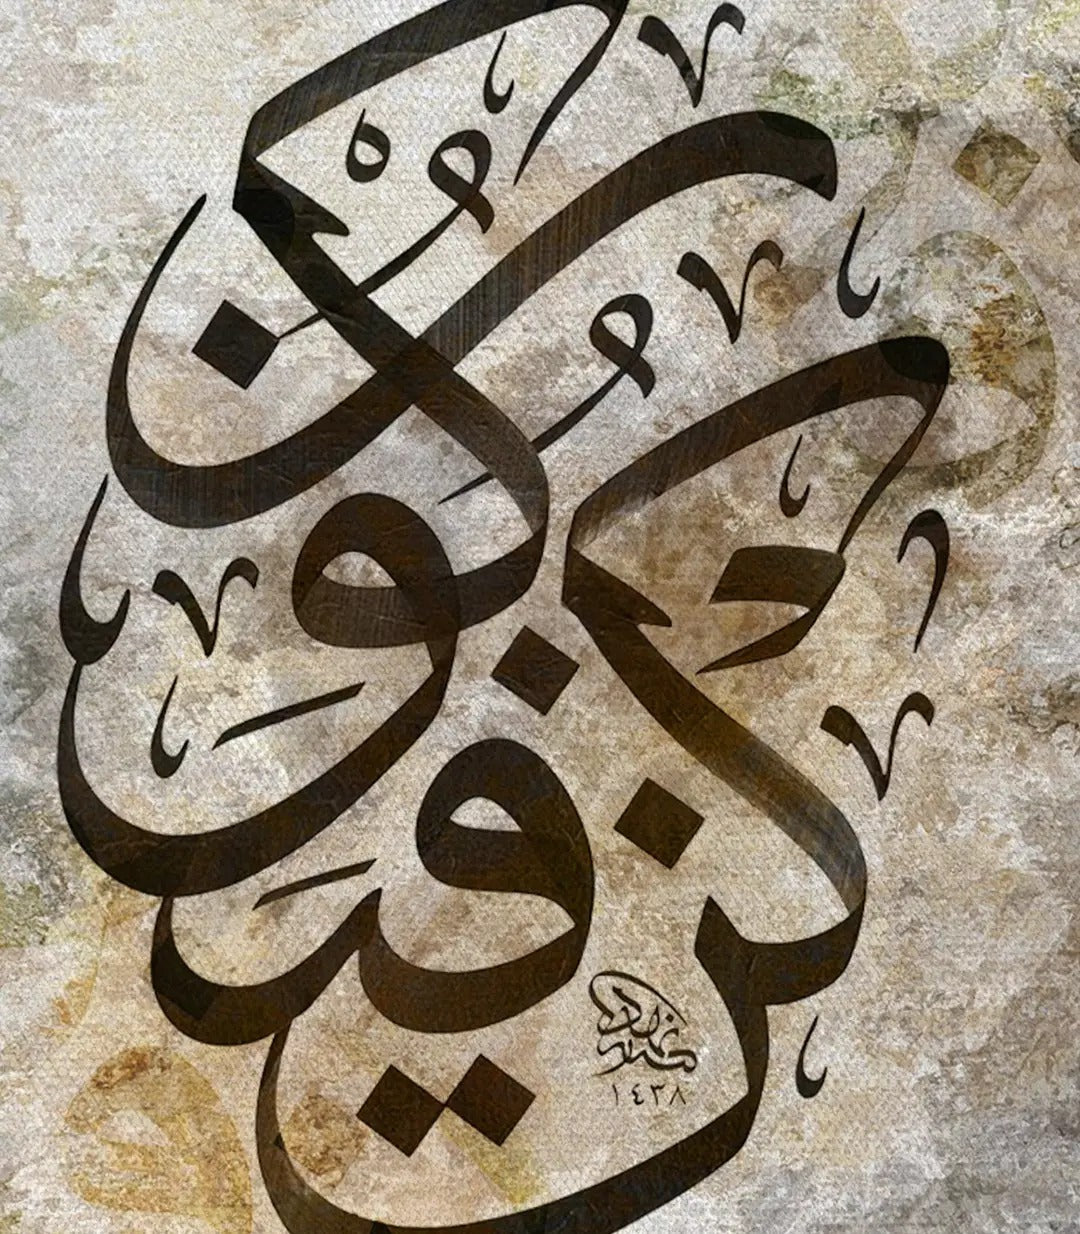 كُن فَيَكُون
١٤٣٨